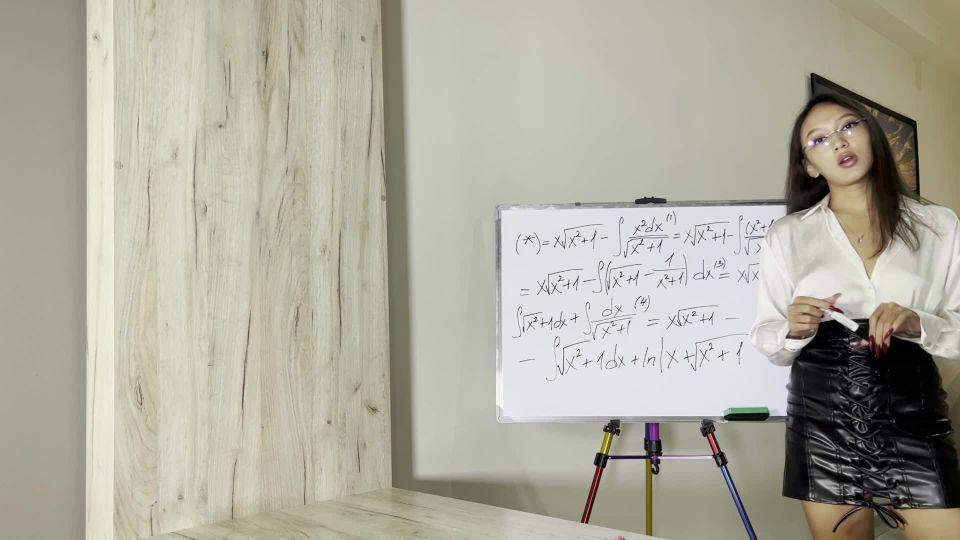 (*) = x√x²+1 - ∫ x²dx/√x²+1 (1) = x√x²+1 - ∫ (x²+1
= x√x²+1 - ∫(√x²+1 - 1/√x²+1) dx (3) = x√x
∫√x²+1dx + ∫ dx/√x²+1 (4) = x√x²+1 -
- ∫√x²+1dx + ln|x+√x²+1